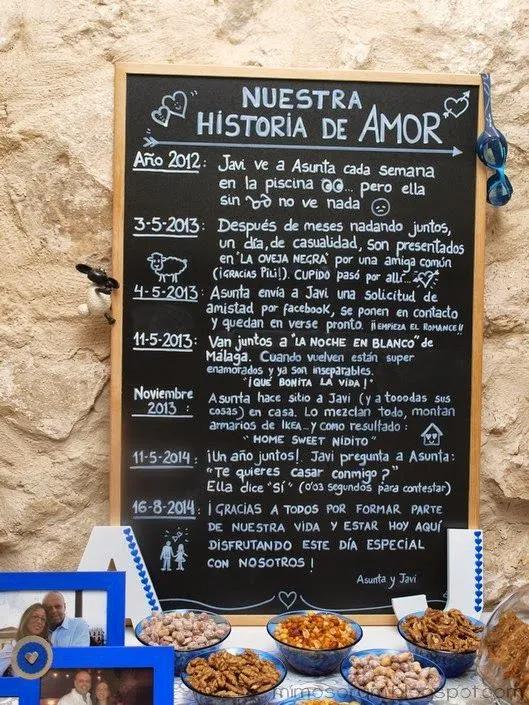 NUESTRA
HISTORIA DE AMOR
Año 2012: Javi ve a Asunta cada semana
en la piscina ... pero ella
sin no ve nada
3-5-2013: Después de meses nadando juntos,
un día, de casualidad, son presentados
en "LA OVEJA NEGRA" por una amiga común
(¡GRACIAS PILI!). CUPIDO PASÓ POR ALLÍ...
4-5-2013: Asunta envía a Javi una solicitud de
amistad por facebook, se ponen en contacto
y quedan en verse pronto. ¡¡EMPIEZA EL ROMANCE!!
11-5-2013: Van juntos a "LA NOCHE EN BLANCO" de
Málaga. Cuando vuelven están super
enamorados y ya son inseparables.
"¡QUE BONITA LA VIDA!"
Noviembre
2013: Asunta hace sitio a Javi (y a tooodas sus
cosas) en casa. Lo mezclan todo, montan
armarios de IKEA... y como resultado:
"HOME SWEET NIDITO"
11-5-2014: ¡Un año juntos! Javi pregunta a Asunta:
"Te quieres casar conmigo?"
Ella dice "SÍ" (0'03 segundos para contestar)
16-8-2014: ¡GRACIAS A TODOS POR FORMAR PARTE
DE NUESTRA VIDA Y ESTAR HOY AQUÍ
DISFRUTANDO ESTE DÍA ESPECIAL
CON NOSOTROS!
Asunta y Javi
A J